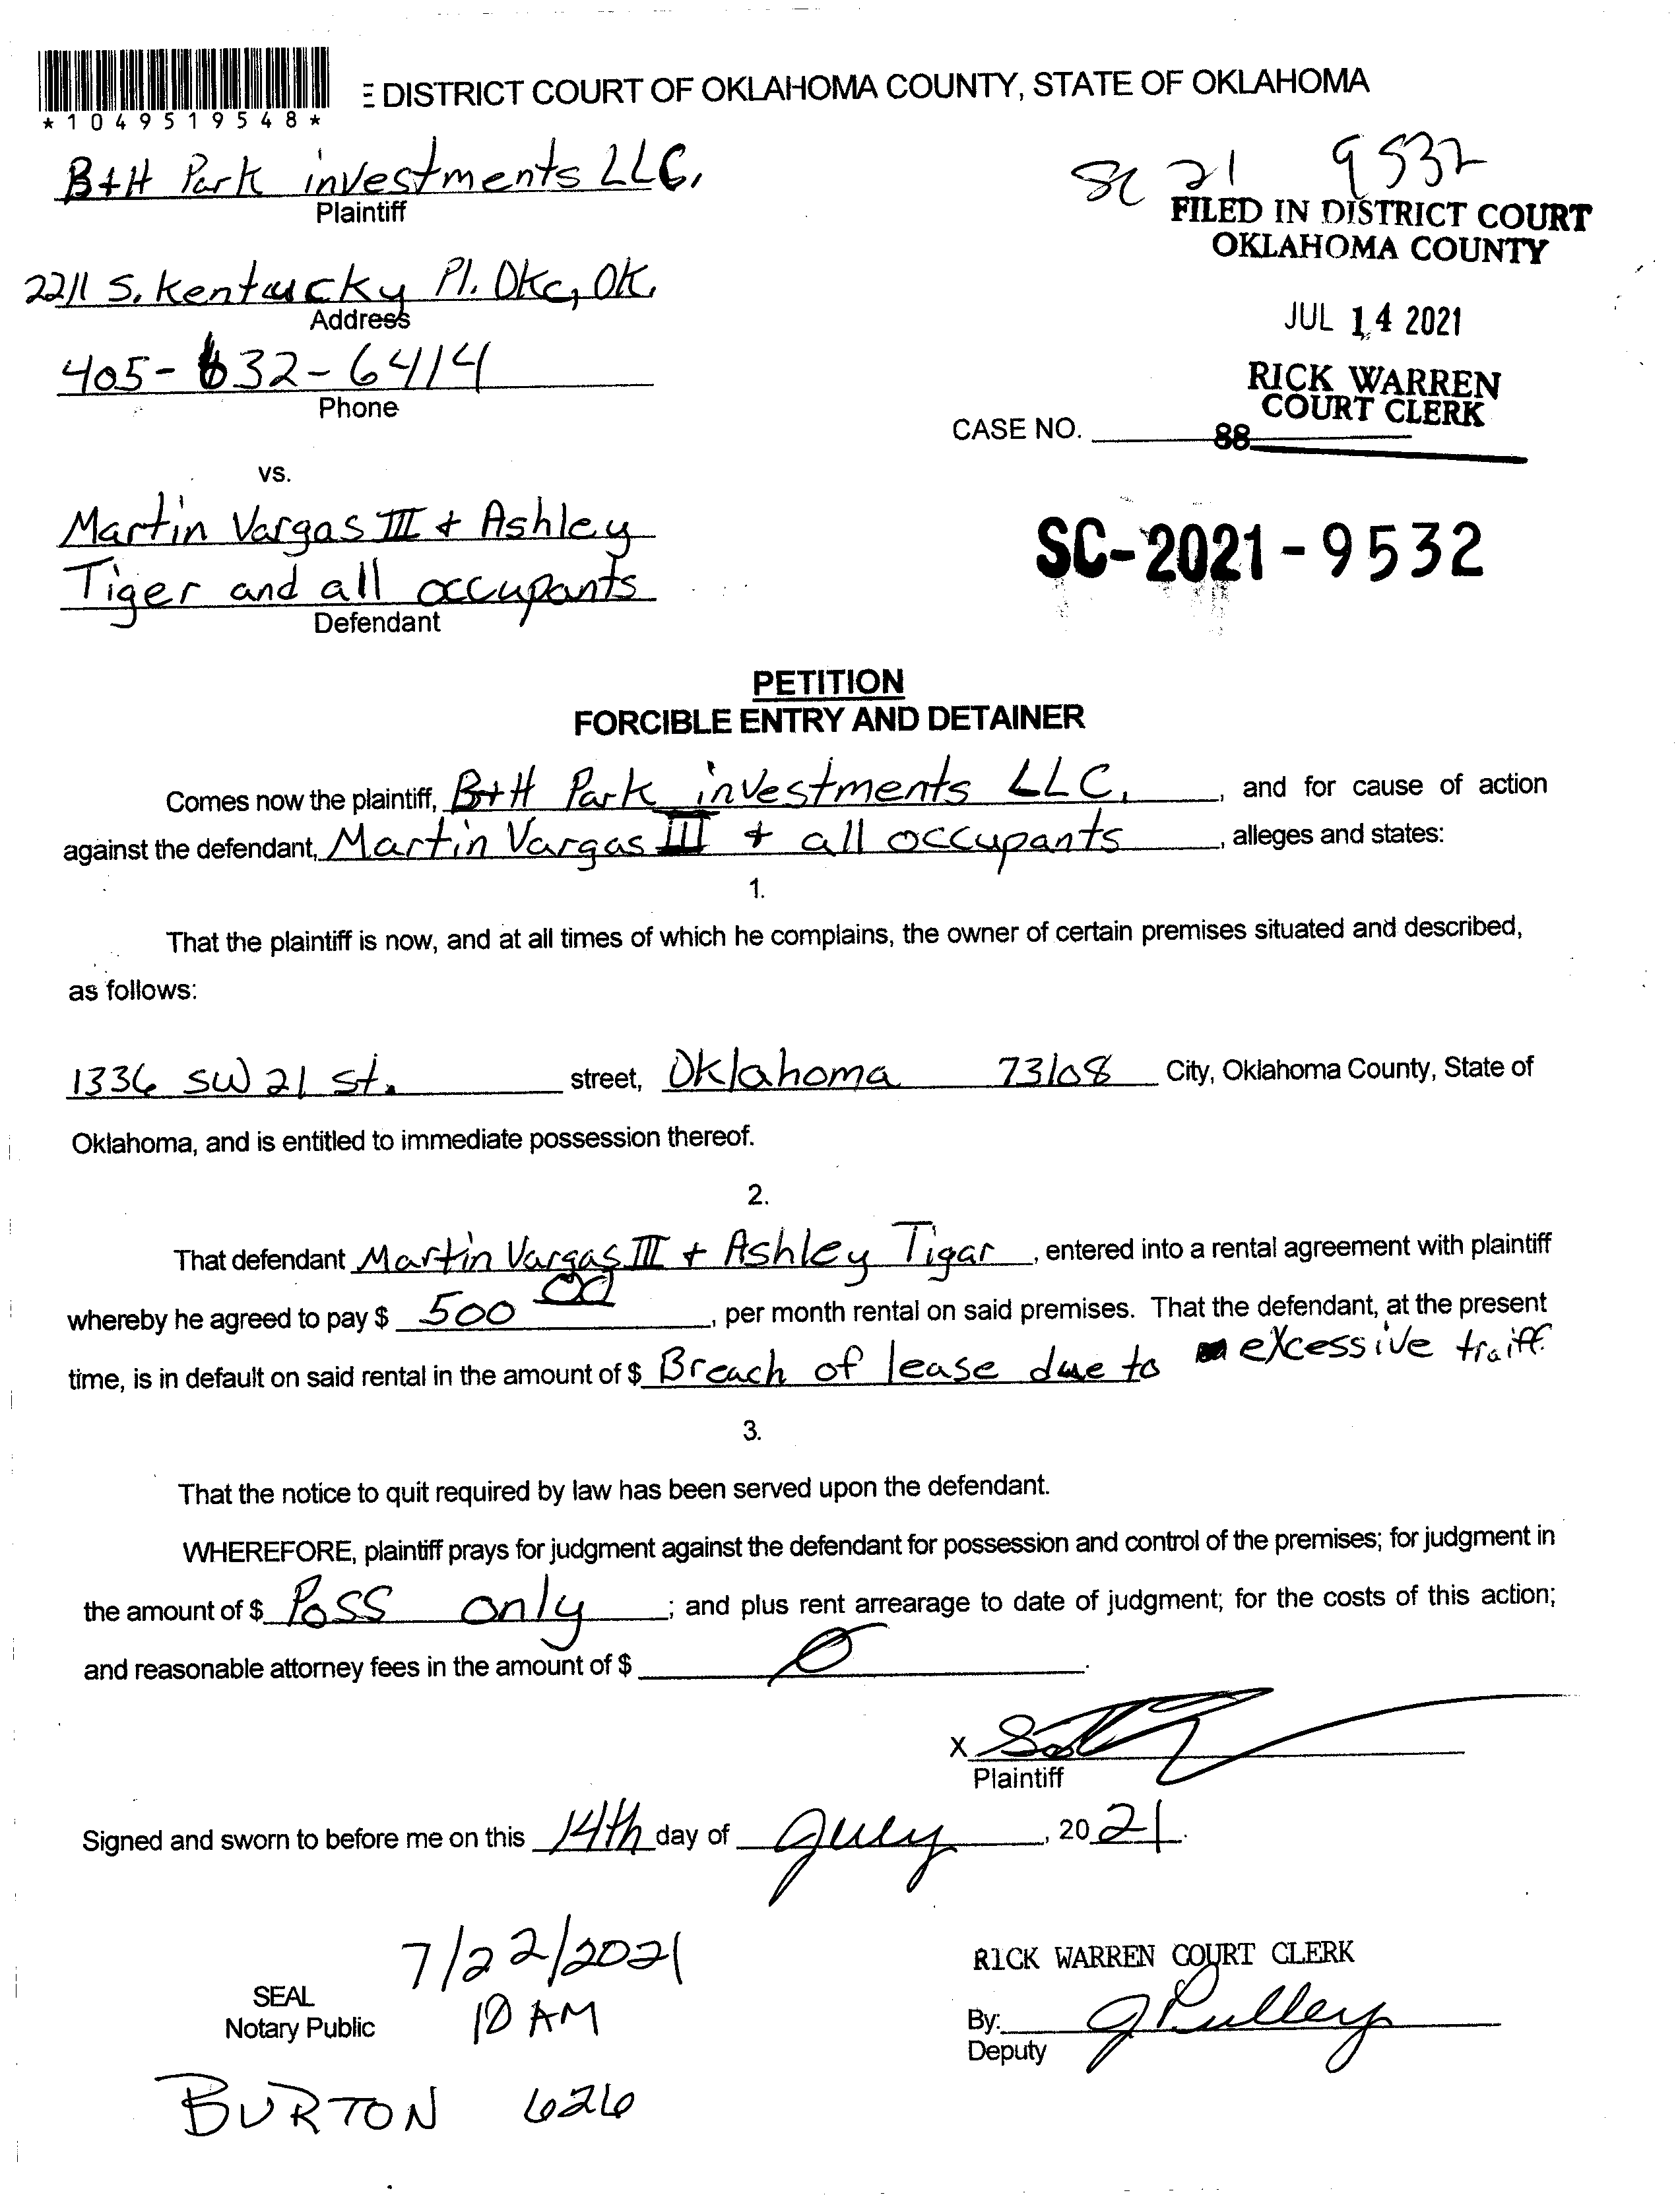 *1049519548*
E DISTRICT COURT OF OKLAHOMA COUNTY, STATE OF OKLAHOMA
B+H Park investments LLC.
Plaintiff
SC 21 9532
FILED IN DISTRICT COURT
OKLAHOMA COUNTY
2211 S. Kentucky Pl. Okc, OK.
Address
JUL 14 2021
405-632-6414
Phone
RICK WARREN
COURT CLERK
CASE NO. 88
vs.
Martin Vargas III + Ashley
Tiger and all occupants
Defendant
SC-2021-9532
PETITION
FORCIBLE ENTRY AND DETAINER
Comes now the plaintiff, B+H Park investments LLC. , and for cause of action
against the defendant, Martin Vargas III + all occupants , alleges and states:
1.
That the plaintiff is now, and at all times of which he complains, the owner of certain premises situated and described,
as follows:
1336 SW 21 St. street, Oklahoma 73108 City, Oklahoma County, State of
Oklahoma, and is entitled to immediate possession thereof.
2.
That defendant Martin Vargas III + Ashley Tigar , entered into a rental agreement with plaintiff
whereby he agreed to pay $ 500 00 , per month rental on said premises. That the defendant, at the present
time, is in default on said rental in the amount of $ Breach of lease due to excessive traiff.
3.
That the notice to quit required by law has been served upon the defendant.
WHEREFORE, plaintiff prays for judgment against the defendant for possession and control of the premises; for judgment in
the amount of $ Poss only ; and plus rent arrearage to date of judgment; for the costs of this action;
and reasonable attorney fees in the amount of $ Ø .
X
Plaintiff
Signed and sworn to before me on this 14th day of July , 20 21.
7/22/2021
10 AM
SEAL
Notary Public
RICK WARREN COURT CLERK
By: J Pulley
Deputy
BURTON 626